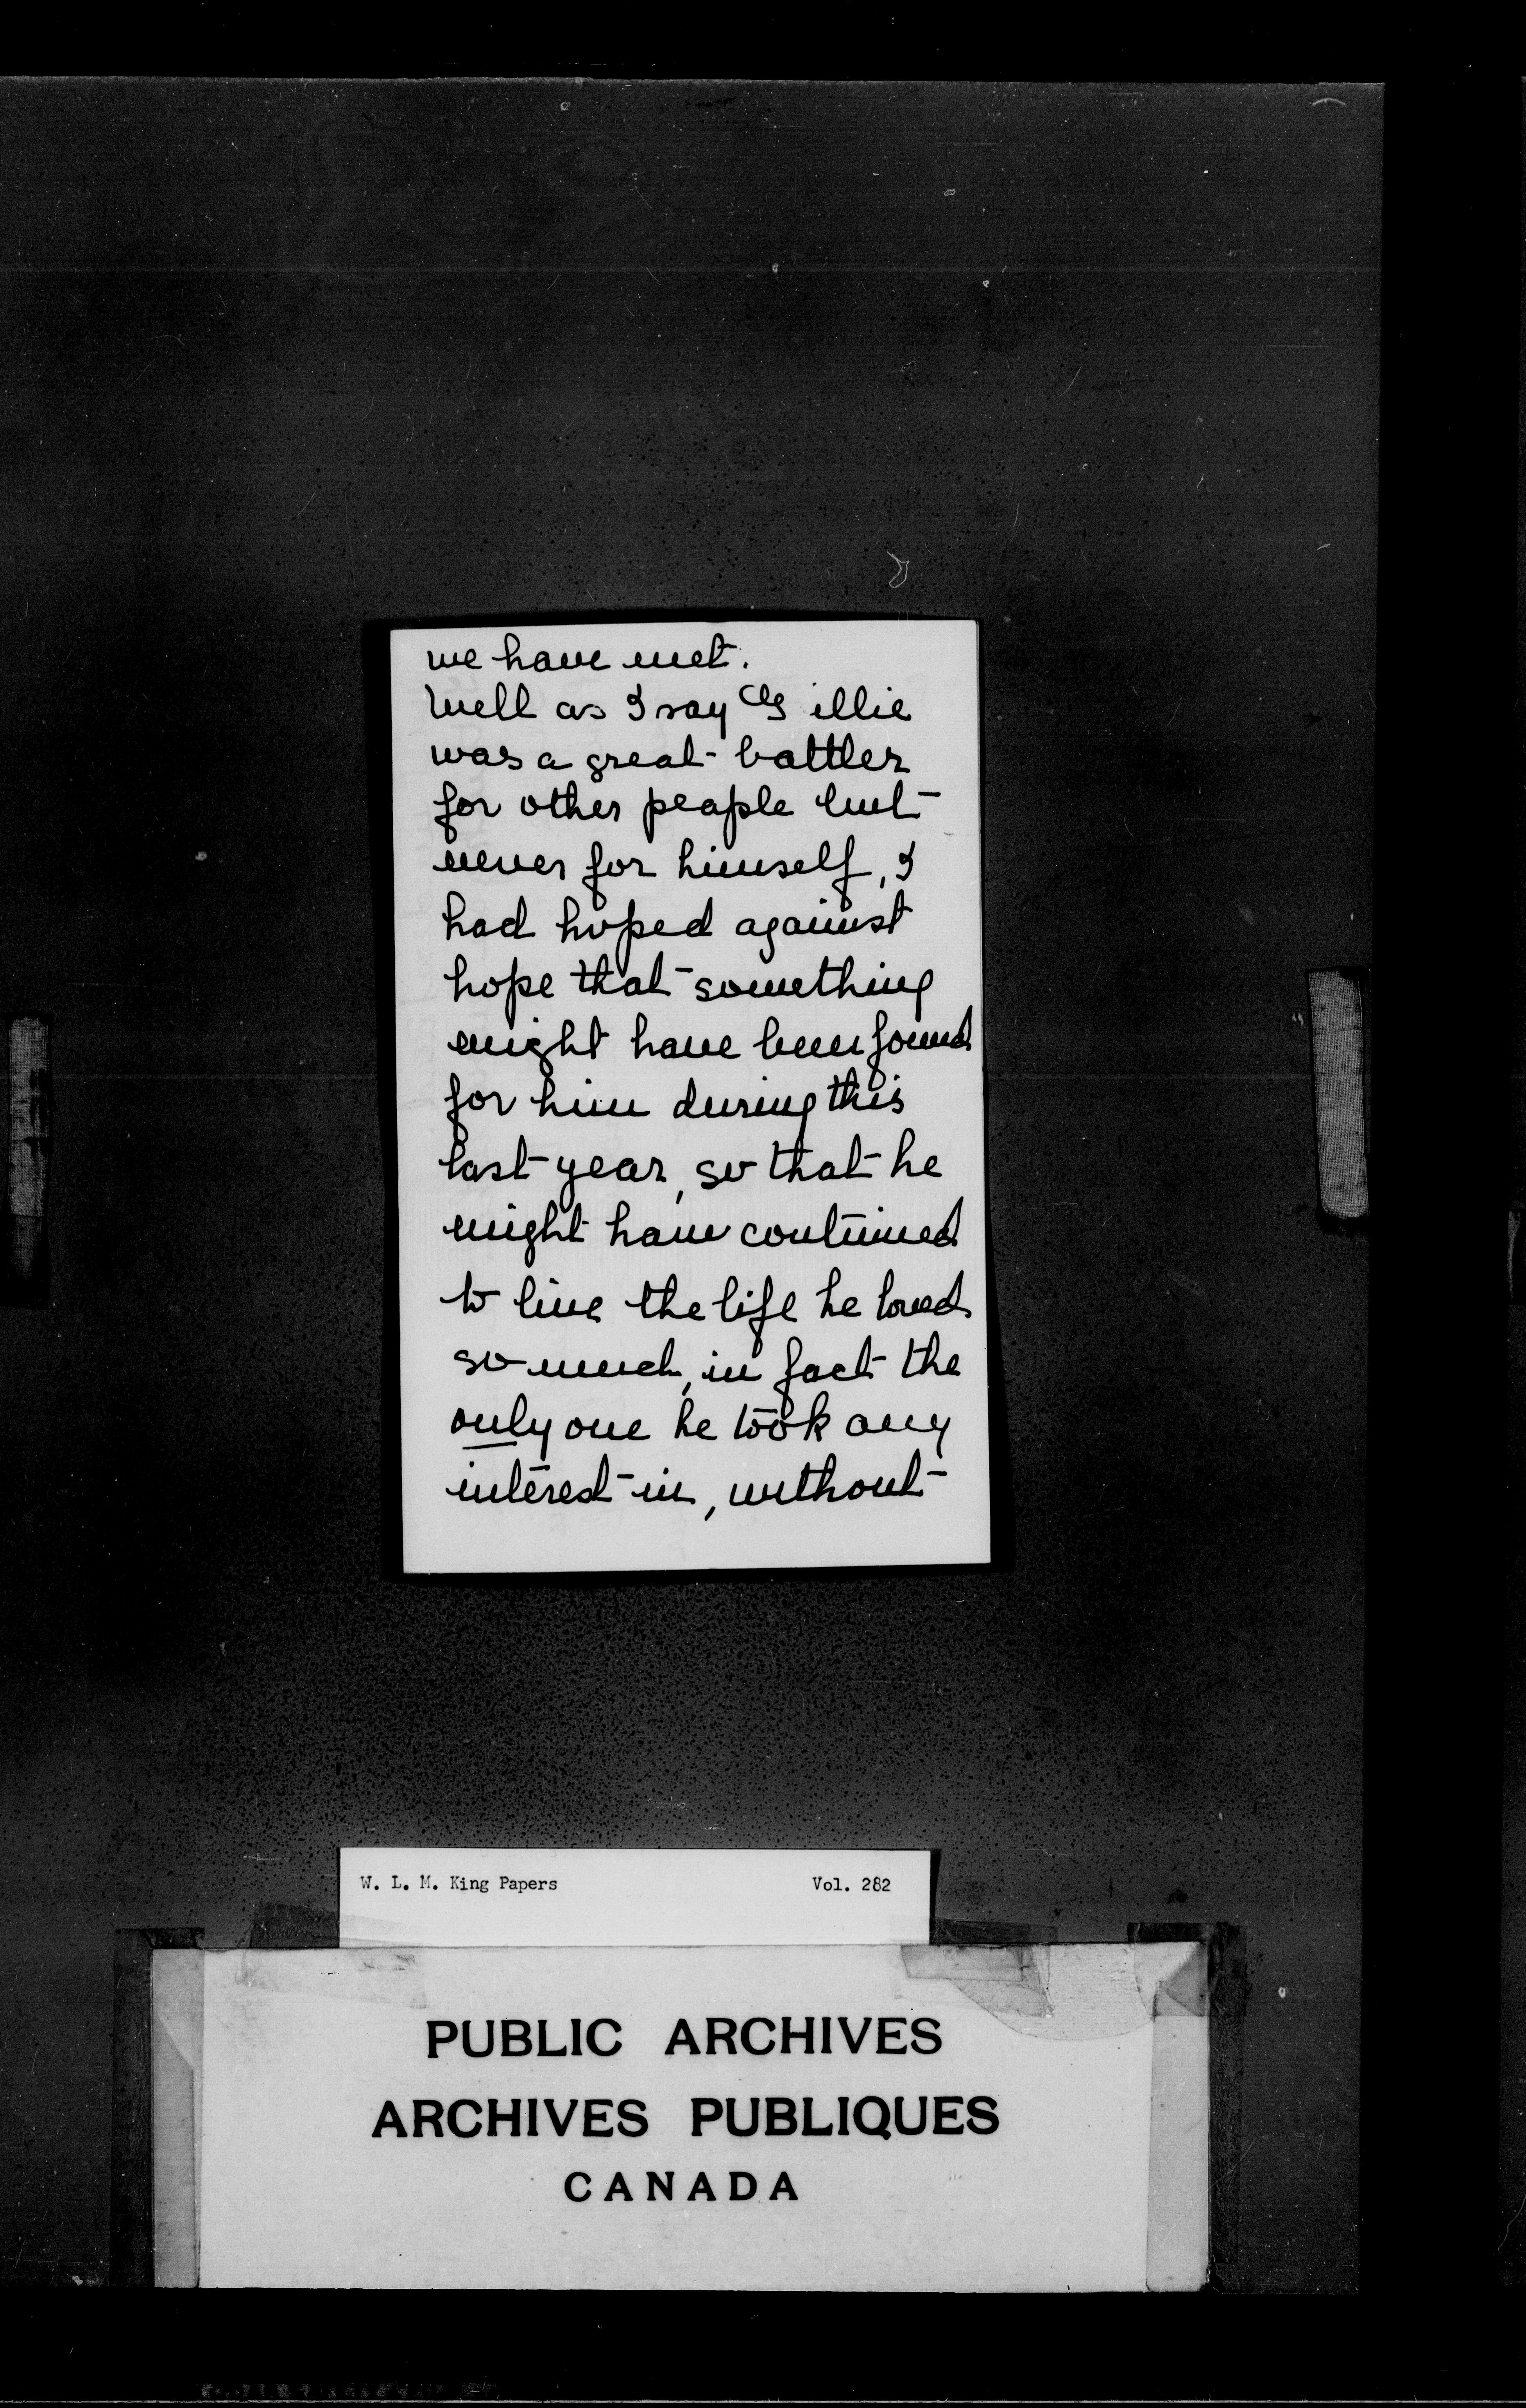 we have met.
Well as I say Gillie
was a great battler
for other people but
never for himself, I
had hoped against
hope that something
might have been found
for him during this
last year, so that he
might have continued
to live the life he loved
so much, in fact the
only one he took any
interest in, without
W. L. M. King Papers Vol. 282
PUBLIC ARCHIVES
ARCHIVES PUBLIQUES
CANADA